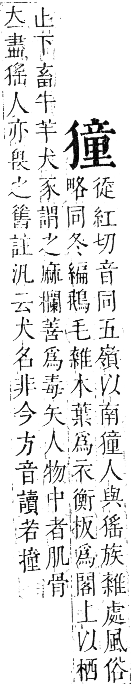 獞 從紅切音同五嶺以南獞人與猺族雜處風俗
略同冬編鵝毛雜木葉為衣衡板為閣上以栖
止下畜牛羊犬豕謂之麻欄善為毒矢人物中者肌骨
盡猺人亦與之舊註汎云犬名非今方音讀若撞